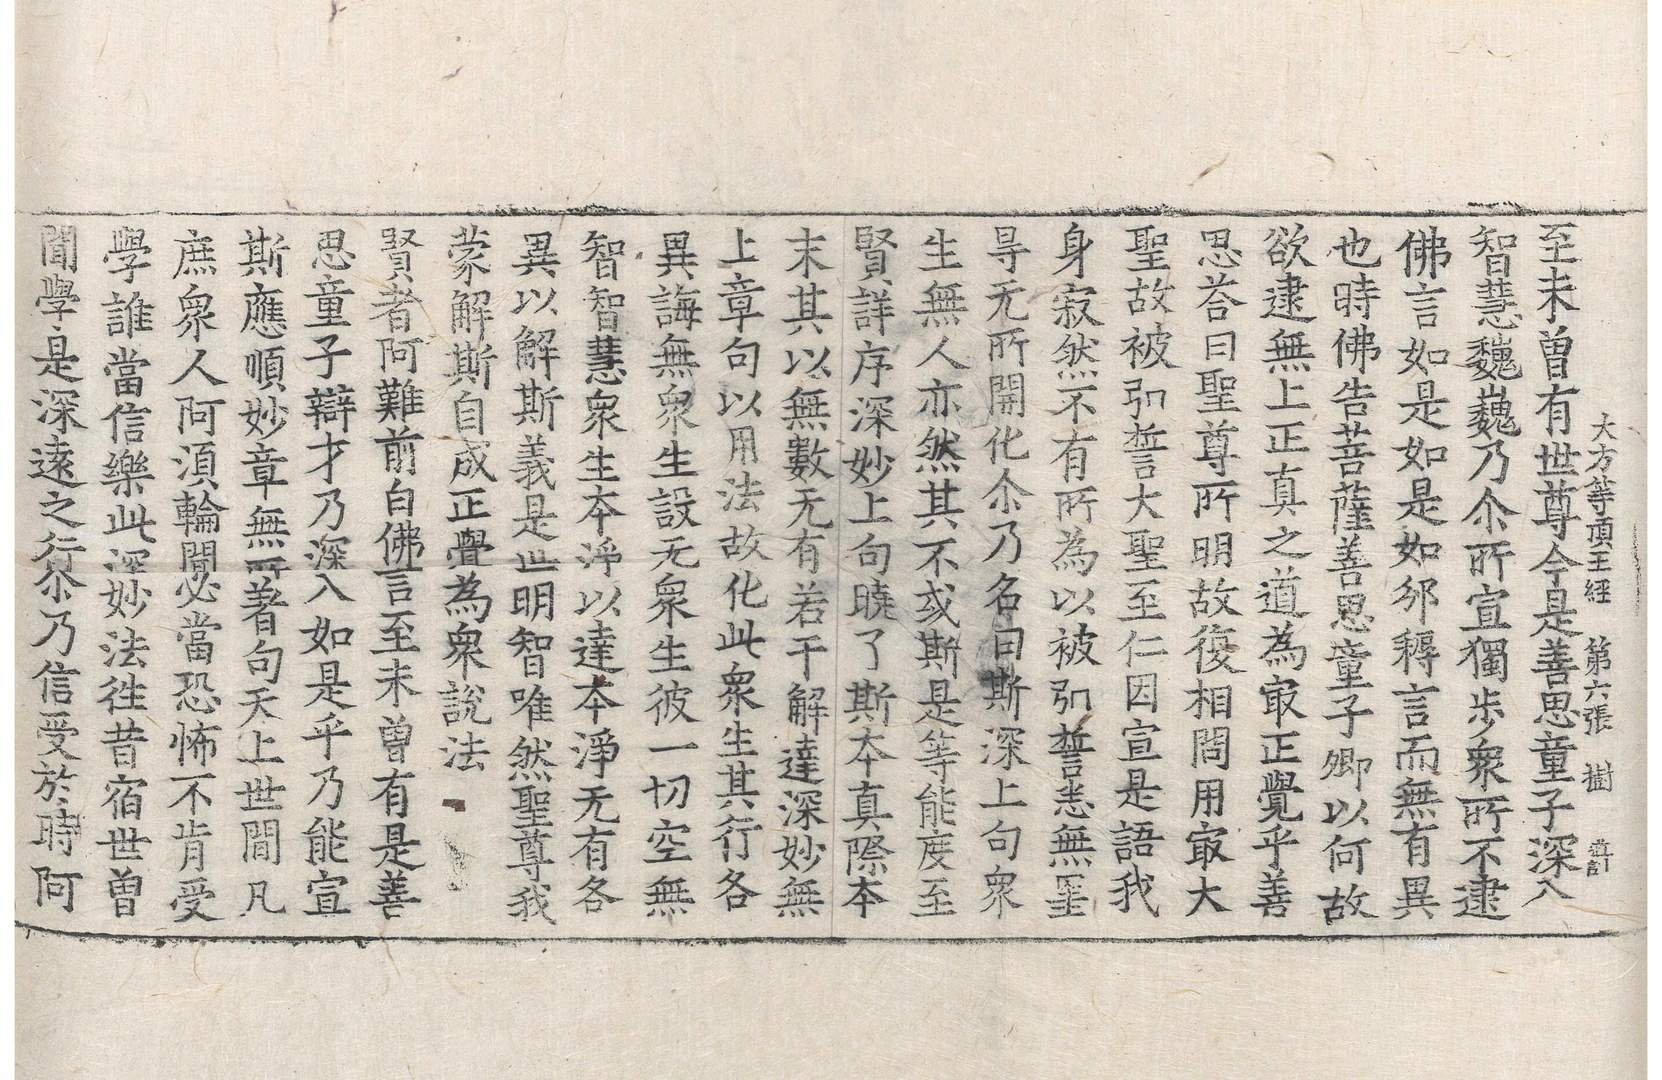 大方等頂王經 第六張 樹
至未曾有世尊今是善思童子深入
智慧巍巍乃尒所宣獨步衆所不逮
佛言如是如是如卿㝅言而無有異
也時佛告菩薩善思童子卿以何故
欲逮無上正真之道為㝡正覺乎善
思荅曰聖尊所明故復相問用㝡大
聖故被弘誓大聖至仁因宣是語我
身寂然不有所為以被弘誓悉無罣
㝵无所開化尒乃名曰斯深上句衆
生無人亦然其不或斯是等能度至
賢詳序深妙上句曉了斯本真際本
末其以無數无有若干解達深妙無
上章句以用法故化此衆生其行各
異誨無衆生設无衆生彼一切空無
智智慧衆生本淨以達本淨无有各
異以解斯義是世明智唯然聖尊我
蒙解斯自成正覺為衆說法
賢者阿難前白佛言至未曾有是善
思童子辯才乃深入如是乎乃能宣
斯應順妙章無所著句天上世間凡
庶衆人阿須輪聞必當恐怖不肯受
學誰當信樂此深妙法徃昔宿世曾
聞學是深遠之行尒乃信受於時阿